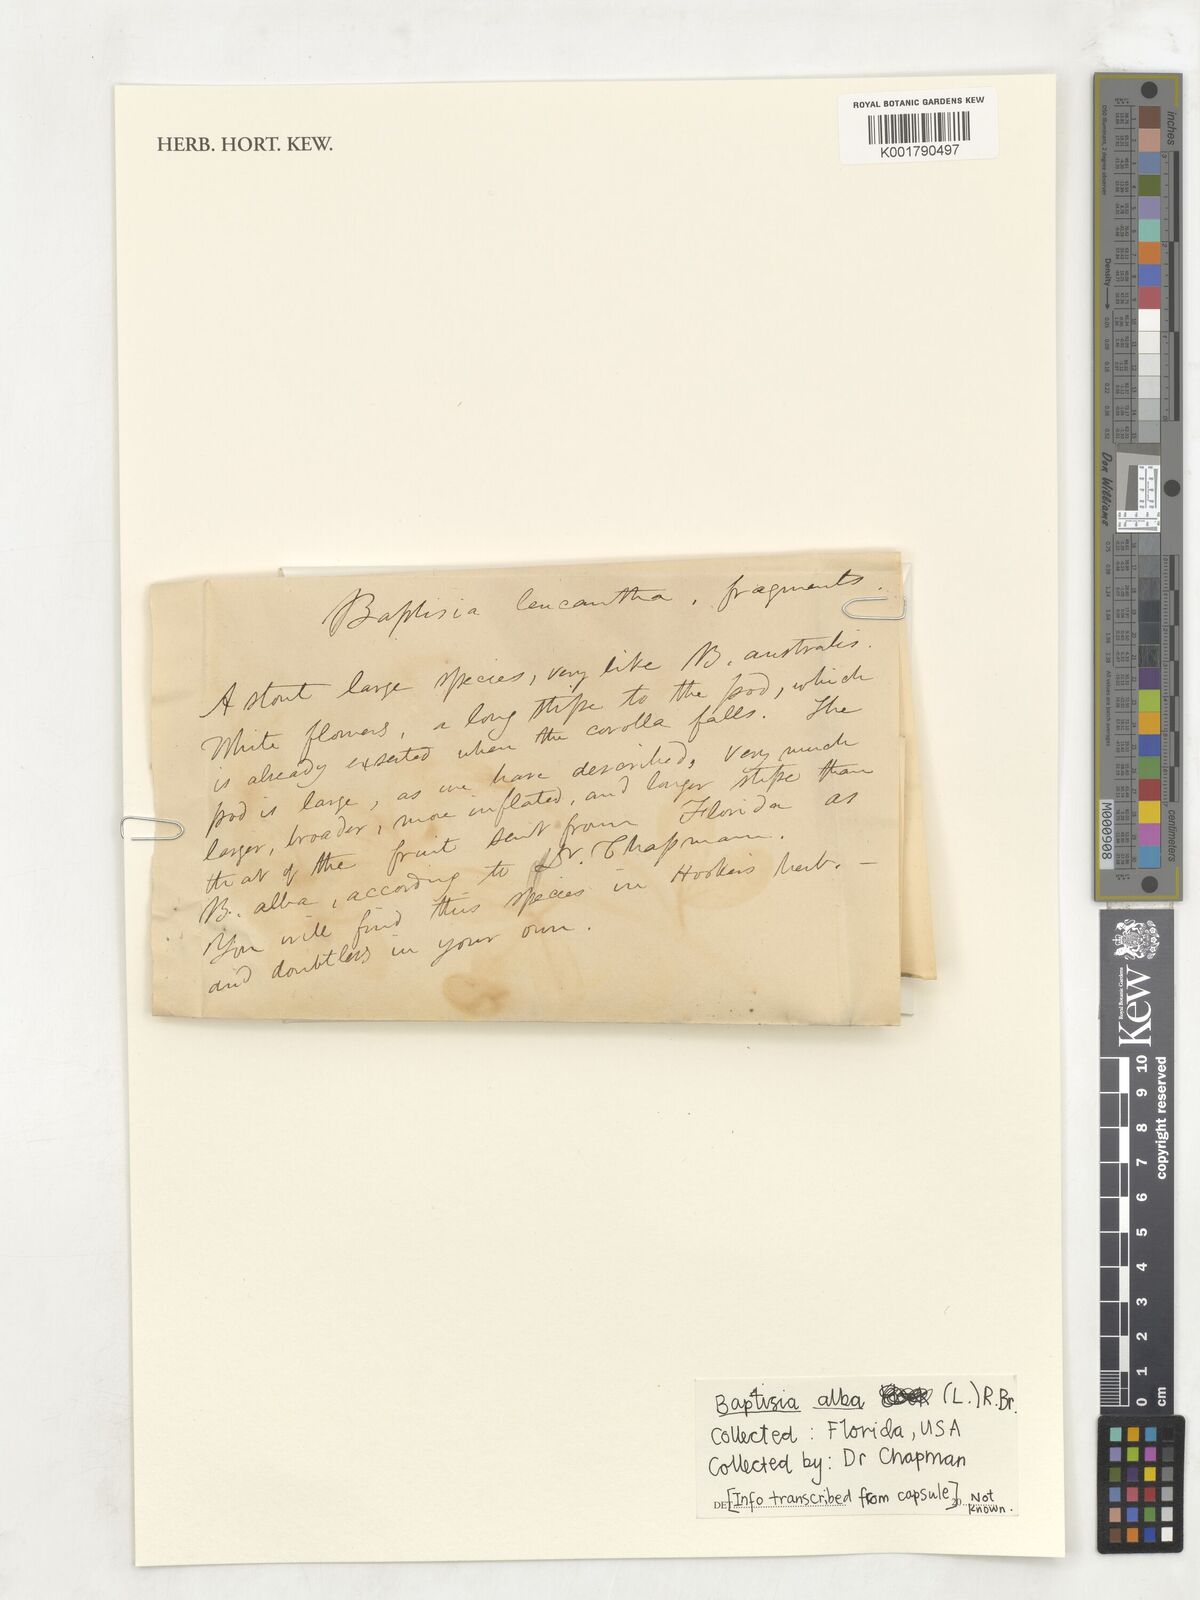 HERB. HORT. KEW.
ROYAL BOTANIC GARDENS KEW
K001790497
Baptisia leucantha, fragments.
A stout large species, very like B. australis.
White flowers, a long stipe to the pod, which
is already exserted when the corolla falls. The
pod is large, as we have described, very much
larger, broader, more inflated, and longer stipe than
that of the fruit sent from Florida as
B. alba, according to Dr. Chapman.
You will find this species in Hooker's herb. —
and doubtless in your own.
Baptisia alba (L.) R.Br.
Collected : Florida, USA
Collected by: Dr Chapman
DET [Info transcribed from capsule] 20 Not
known.
inches
Density
Don Williams
M000908
centimeters
Royal Botanic Gardens
Kew
copyright reserved
10
9
8
7
6
5
4
3
2
1
0
cm